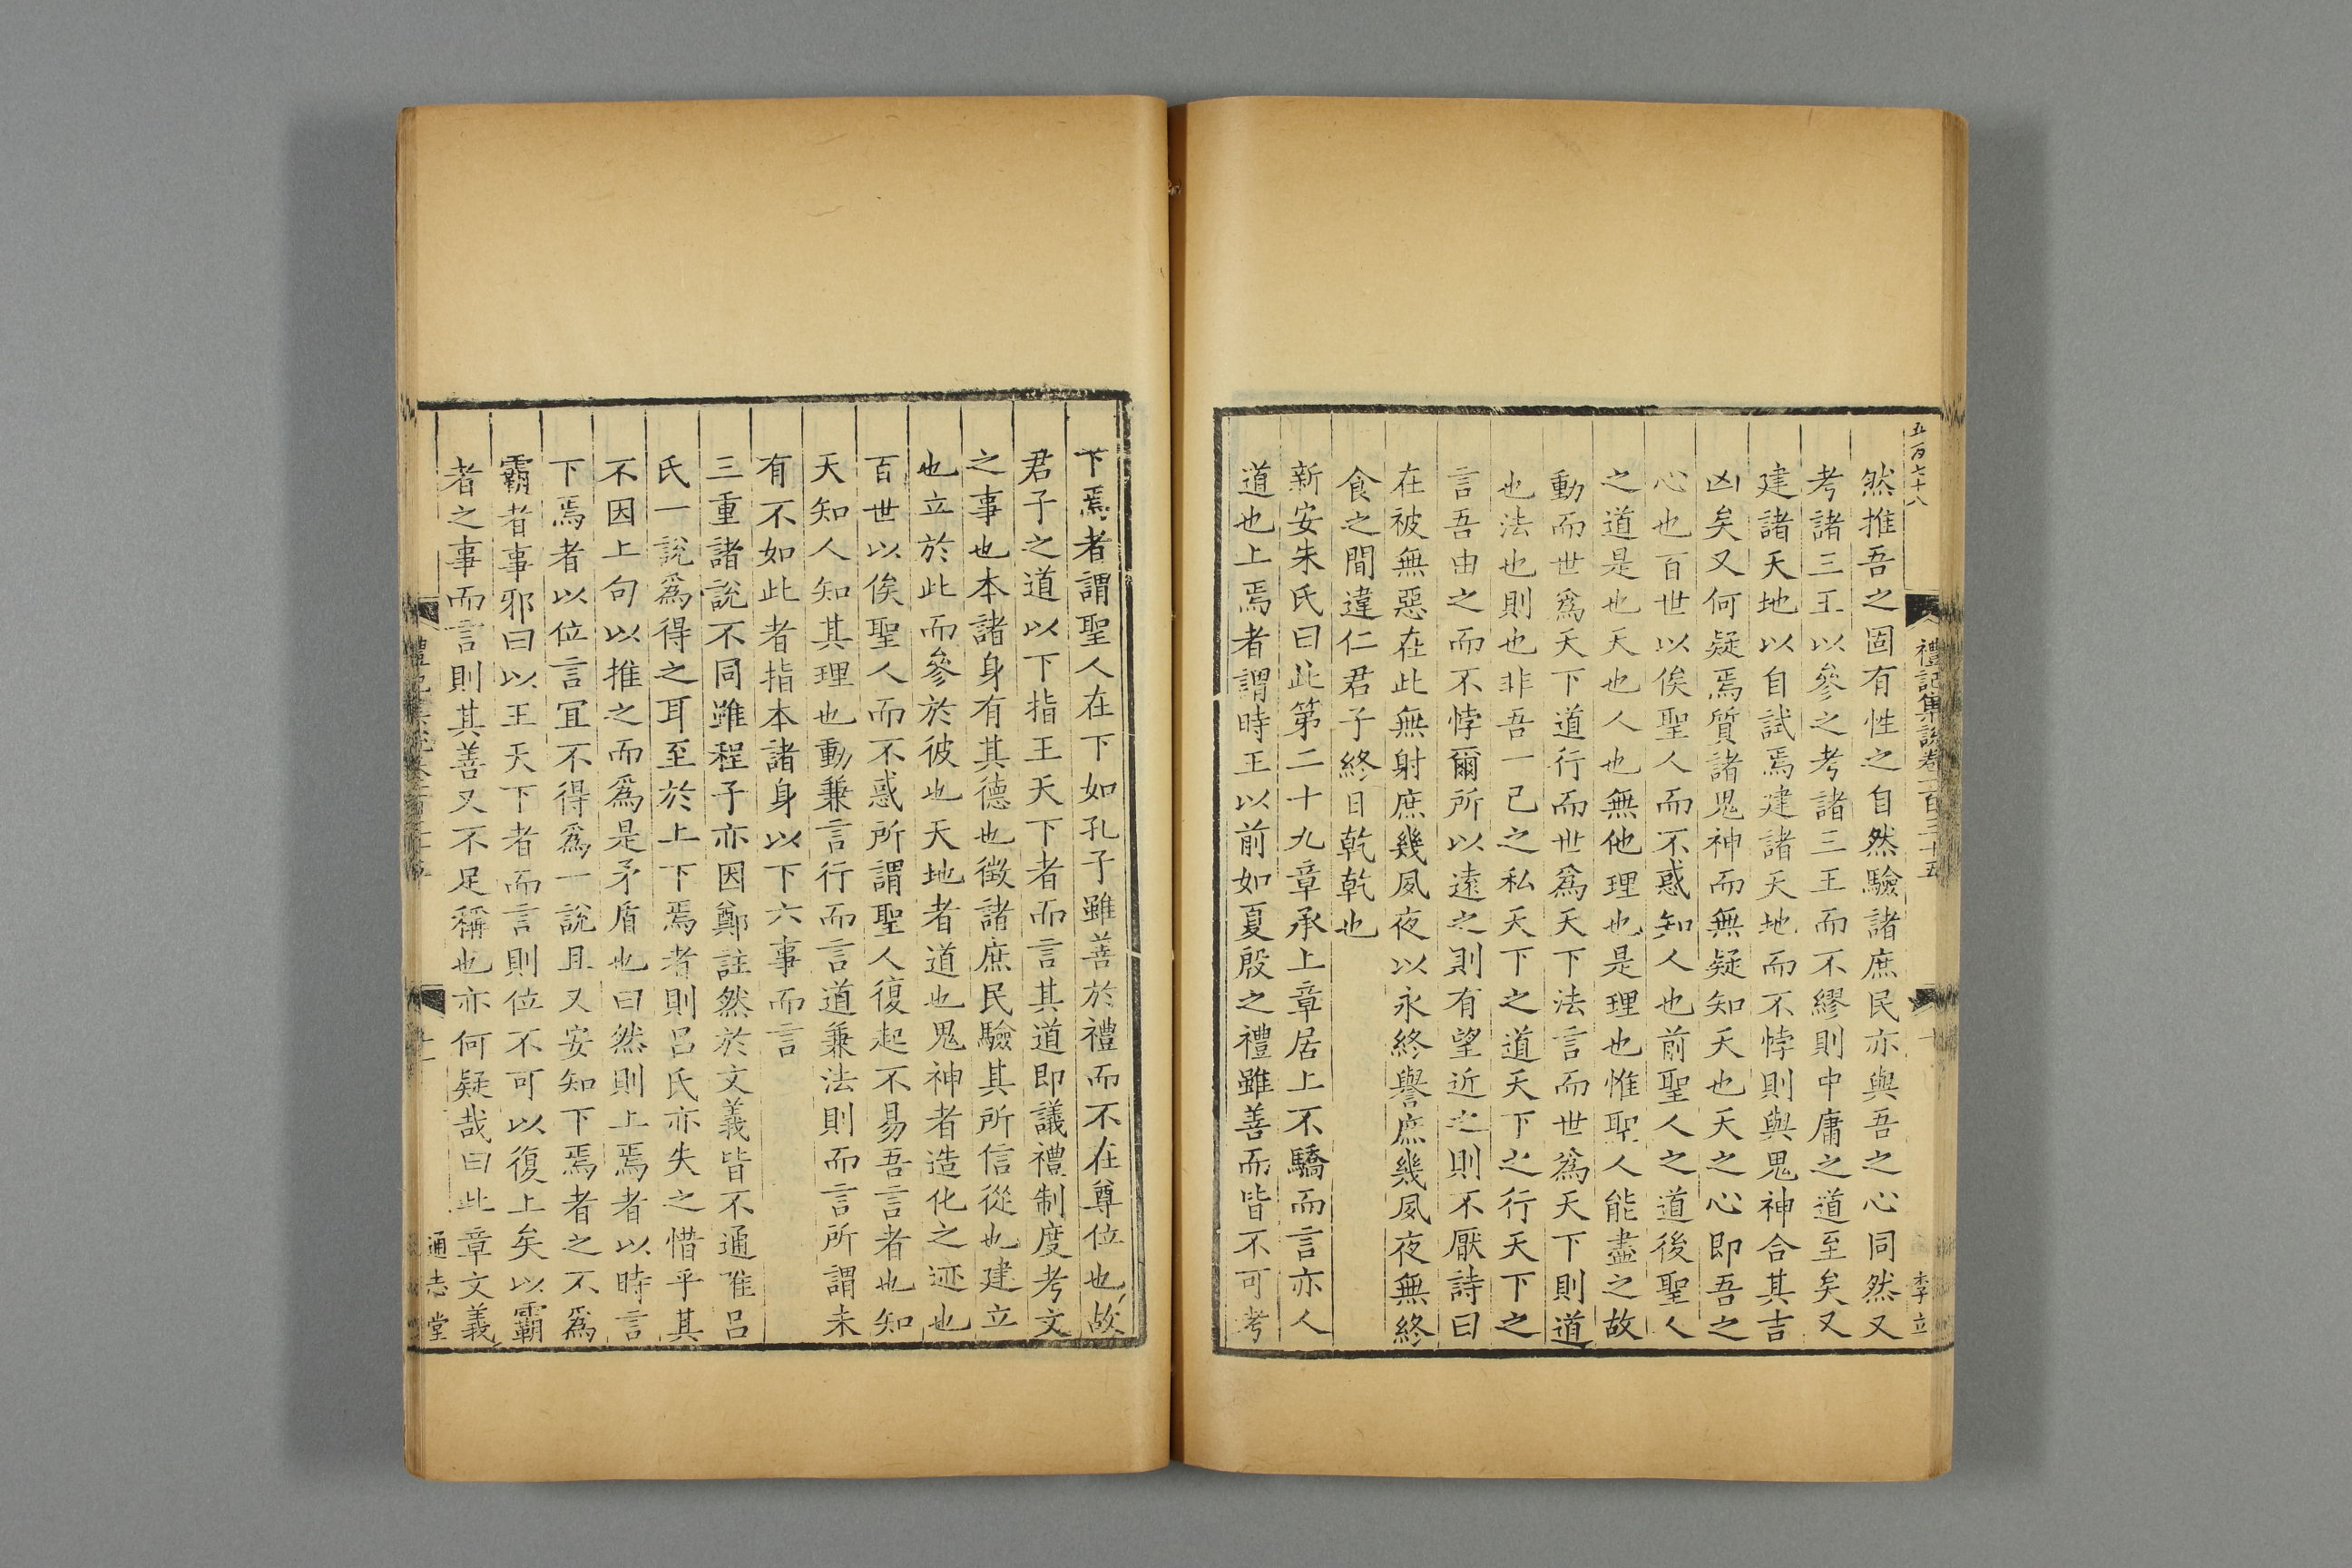 五百七十八
禮記集說卷一百三十五
李立
然推吾之固有性之自然驗諸庶民亦與吾之心同然又
考諸三王以參之考諸三王而不繆則中庸之道至矣又
建諸天地以自試焉建諸天地而不悖則與鬼神合其吉
凶矣又何疑焉質諸鬼神而無疑知天也天之心即吾之
心也百世以俟聖人而不惑知人也前聖人之道後聖人
之道是也天也人也無他理也是理也惟聖人能盡之故
動而世爲天下道行而世爲天下法言而世爲天下則道
也法也則也非吾一己之私天下之道天下之行天下之
言吾由之而不悖爾所以遠之則有望近之則不厭詩曰
在彼無惡在此無射庶幾夙夜以永終譽庶幾夙夜無終
食之間違仁君子終日乾乾也
新安朱氏曰此第二十九章承上章居上不驕而言亦人
道也上焉者謂時王以前如夏殷之禮雖善而皆不可考
下焉者謂聖人在下如孔子雖善於禮而不在尊位也故
君子之道以下指王天下者而言其道即議禮制度考文
之事也本諸身有其德也徵諸庶民驗其所信從也建立
也立於此而參於彼也天地者道也鬼神者造化之迹也
百世以俟聖人而不惑所謂聖人復起不易吾言者也知
天知人知其理也動兼言行而言道兼法則而言所謂未
有不如此者指本諸身以下六事而言
三重諸說不同雖程子亦因鄭註然於文義皆不通惟呂
氏一說爲得之耳至於上下焉者則呂氏亦失之惜乎其
不因上句以推之而爲是矛盾也曰然則上焉者以時言
下焉者以位言宜不得爲一說且又安知下焉者之不爲
霸者事邪曰以王天下者而言則位不可以復上矣以霸
者之事而言則其善又不足稱也亦何疑哉曰此章文義
通志堂